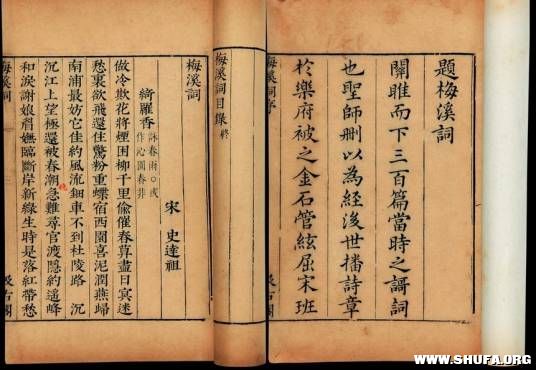 題梅溪詞
關雎而下三百篇當時之謌詞
也聖師刪以為經後世播詩章
於樂府被之金石管絃屈宋班
梅溪詞序
汲古閣
梅溪詞目錄終
梅溪詞
宋 史達祖
綺羅香 詠春雨○或
作沁園春非
做冷欺花將煙困柳千里偷催春暮盡日冥迷
愁裏欲飛還住驚粉重蝶宿西園喜泥潤燕歸
南浦最妨它佳約風流鈿車不到杜陵路 沉
沉江上望極還被春潮晚急難尋官渡隱約遙峰
和淚謝娘眉嫵臨斷岸新綠生時是落紅帶愁
梅溪詞
汲古閣
WWW.SHUFA.ORG